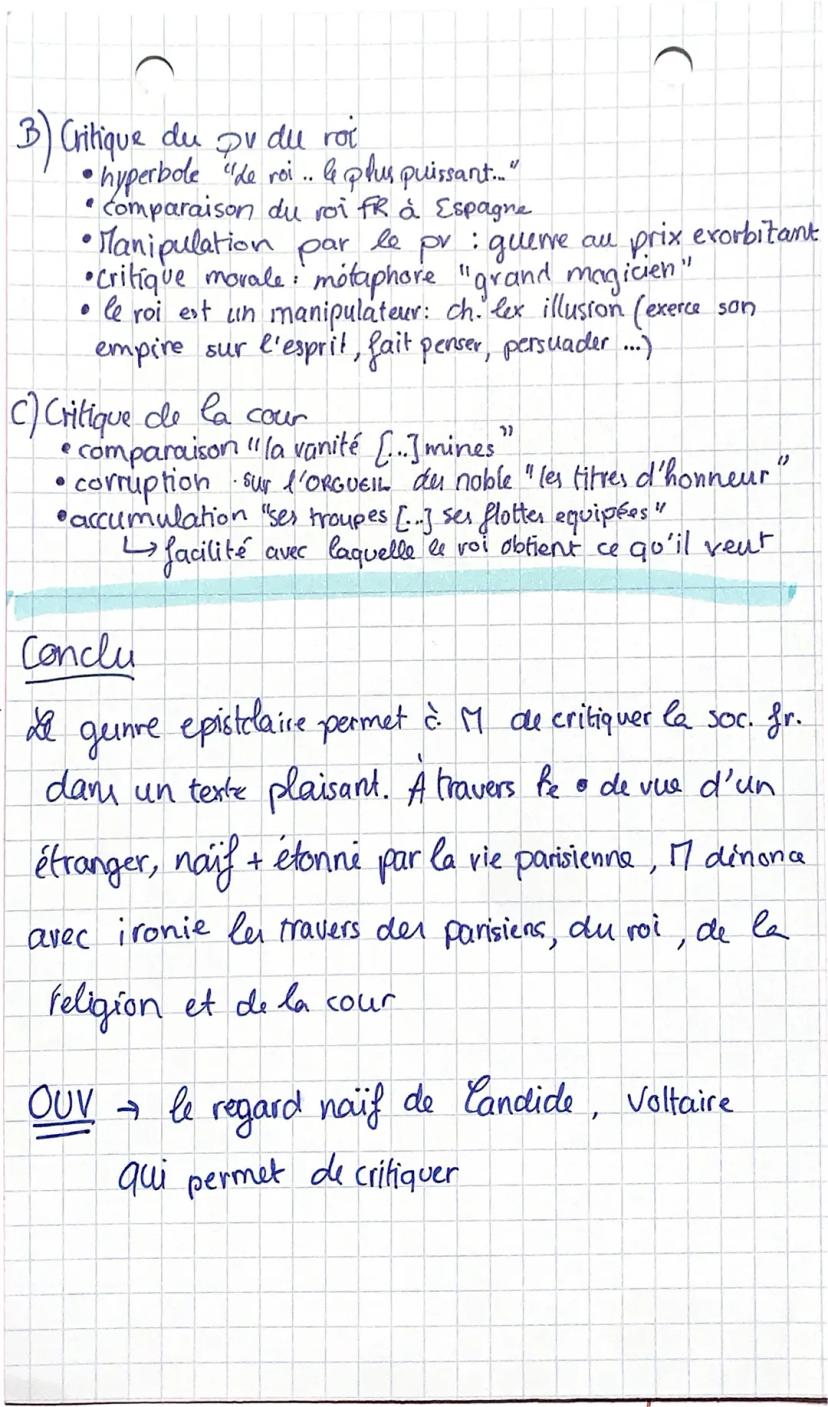 B) Critique du pv du roi
• hyperbole "de roi .. le plus puissant..."
• comparaison du roi FR à Espagne
• Manipulation par le pv : guerre au prix exorbitant
• critique morale : métaphore "grand magicien"
• le roi est un manipulateur: ch. lex illusion (exerce son
empire sur l'esprit, fait penser, persuader ...)
C) Critique de la cour
• comparaison "la vanité [..] mines"
• corruption sur l'ORGUEIL du noble "les titres d'honneur"
• accumulation "ses troupes [..] ses flottes equipées"
↳ facilité avec laquelle le roi obtient ce qu'il veut
Conclu
Le genre epistolaire permet à M de critiquer la soc. fr.
dans un texte plaisant. À travers le • de vue d'un
étranger, naïf + étonné par la vie parisienne, M dénonce
avec ironie les travers des parisiens, du roi, de la
religion et de la cour
OUV → le regard naïf de Candide, Voltaire
qui permet de critiquer